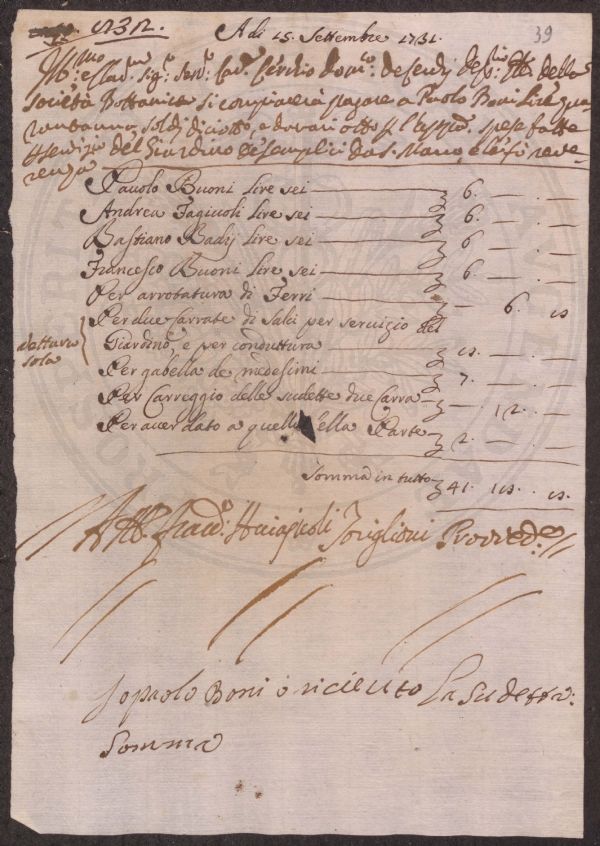 A di 15. Settembre 1731.
39
Ill:mo e Clar:mo Sig:re Sen:re Cav:re
Società Bottanica si compiacerà pagare a Paolo Boni Lire qua
rantauno, soldi diciotto, e danari otto p l'appie. spese fatte
servizio del Giardino de semplici da S. Marco, e le fò reve
renza
Pauolo Buoni lire sei 6. — . —
Andrea Fagiuoli lire sei 6. — . —
Bastiano Badij lire sei 6. — . —
Francesco Buoni lire sei 6. — . —
Per arrotatura di Ferri — 6. 8
Per due carrate di Salci per servizio del
dettura sola
Giardino, e per conduttura 8. — . —
Per gabella de medesimi 7. — . —
Per Carreggio delle sudette due Carra — 12. —
Per auer dato a quelli della Parte 2. — . —
Somma in tutto 41. 18. 8.
Provved:re
Io paolo Boni ò riceuto la sudetta
Somma